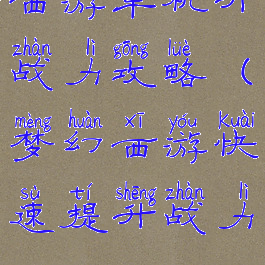 游单机
zhàn lì gōng lüè
战力攻略（
mèng huàn xī yóu kuài
梦幻西游快
sù tí shēng zhàn lì
速提升战力